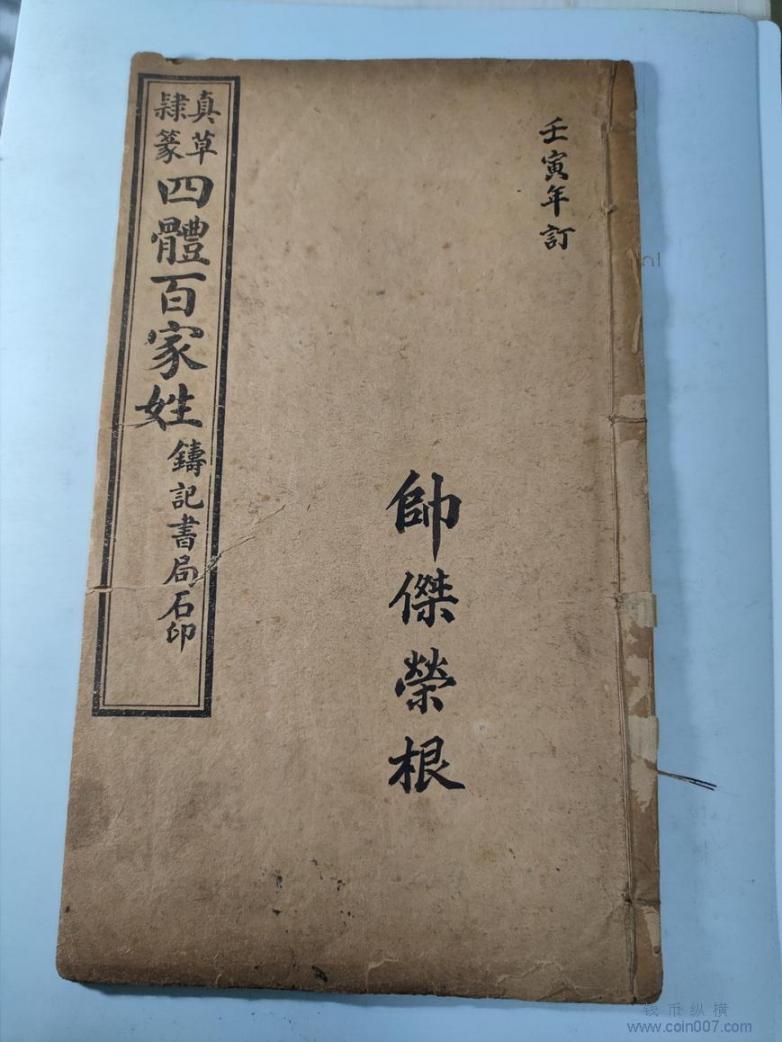 壬寅年訂
帥傑榮根
真草
隸篆
四體百家姓
鑄記書局石印
钱币纵横
www.coin007.com